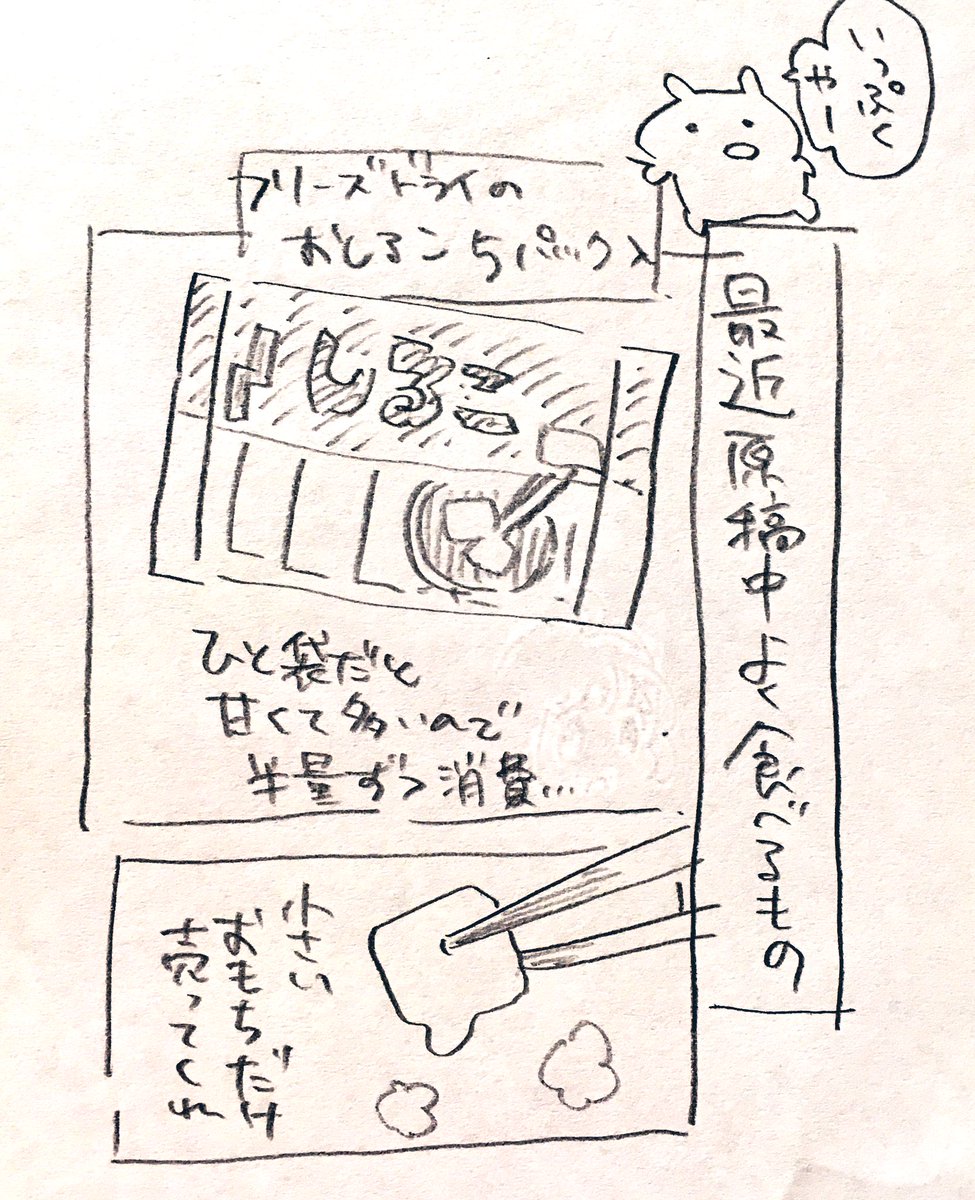 いっぷく
やー
最近原稿中よく食べるもの
フリーズドライの
おしるこ5パック入
おしるこ
ひと袋だと
甘くて多いので
半量ずつ消費…
小さい
おもちだけ
売ってくれ